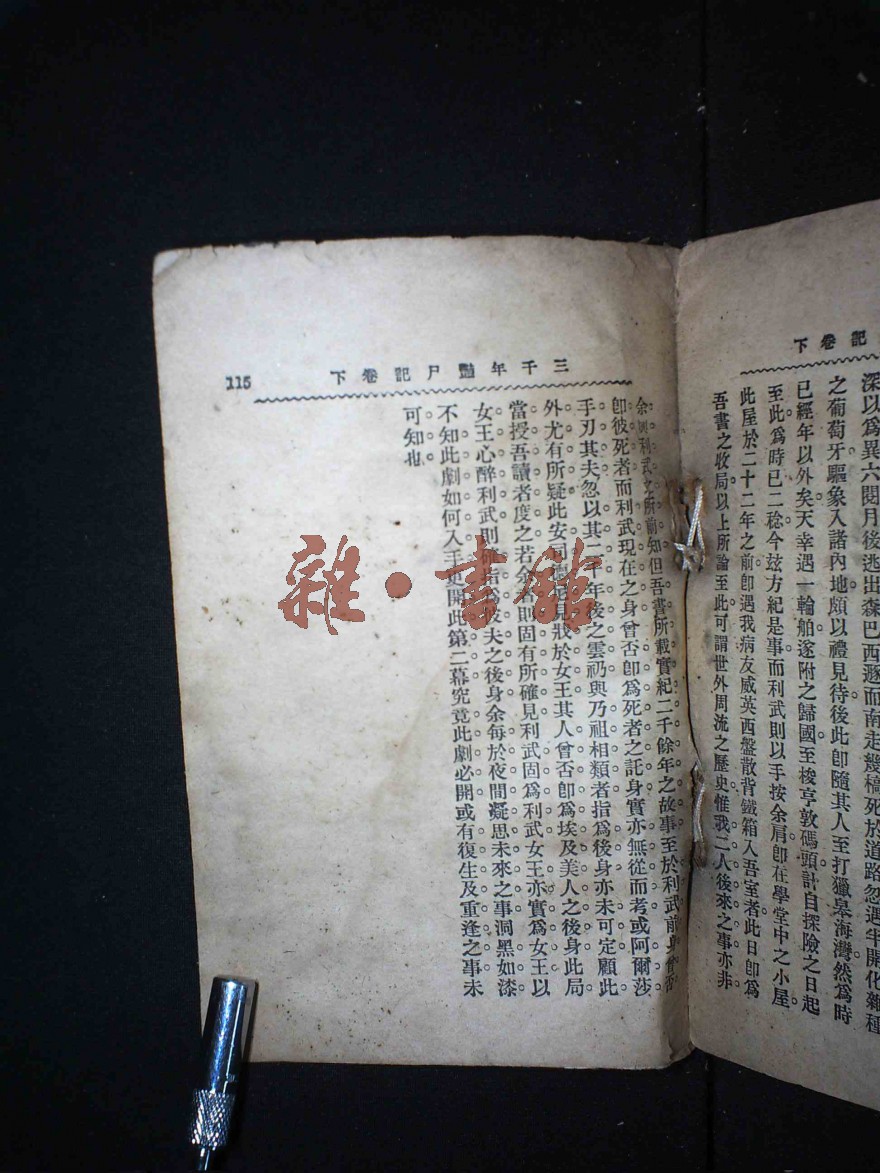 記卷下
深以爲異六閱月後逃出森巴西遯而南走幾槁死於道路忽遇半開化雜種
之葡萄牙驅象入諸內地頗以禮見待後此卽隨其人至打獵臯海灣然爲時
已經年以外矣天幸遇一輪舶遂附之歸國至梭亨敦碼頭計自探險之日起
至此爲時已二稔今玆方紀是事而利武則以手按余肩卽在學堂中之小屋
此屋於二十二年之前卽遇我病友威英西盤散背鐵箱入吾室者此日卽爲
吾書之收局以上所論至此可謂世外周流之歷史惟我二人後來之事亦非
三千年豔尸記卷下
115
余與利武之所前知但吾書所載實紀二千餘年之故事至於利武前身曾否
卽彼死者而利武現在之身曾否卽爲死者之託身實亦無從而考或阿爾莎
手刃其夫忽以其二千年後之雲礽與乃祖相類者指爲後身亦未可定顧此
外尤有所疑此安司德尼見狀於女王其人曾否卽爲埃及美人之後身此局
當授吾讀者度之若余則固有所確見利武固爲利武女王亦實爲女王以
女王心醉利武則確指爲故夫之後身余每於夜間凝思未來之事洞黑如漆
不知此劇如何入手更開此第二幕究竟此劇必開或有復生及重逢之事未
可知也
雜·書館